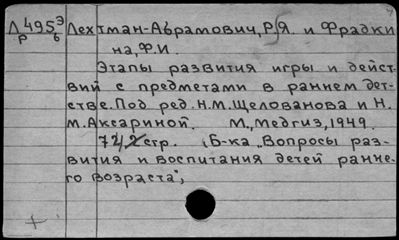 Л 495 Э Лехтман-Абрамович, Р.Я. и Фрадки
р б на, Ф.И.
Этапы развития игры и дейст-
вий с предметами в раннем дет-
стве. Под ред. Н.М. Щелованова и Н.
М. Аксариной. М., Медгиз, 1949.
72, 2 стр. (Б-ка „Вопросы раз-
вития и воспитания детей ранне-
го возраста",